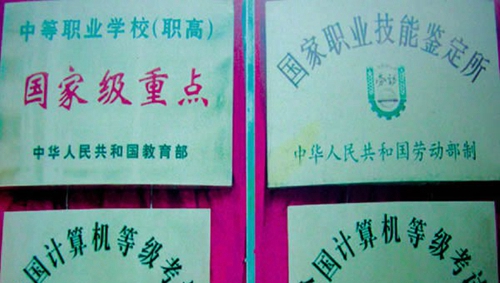 中等职业学校(职高)
国家级重点
中华人民共和国教育部
国家职业技能鉴定所
中华人民共和国劳动部制
国计算机等级考
全国计算机等级考试